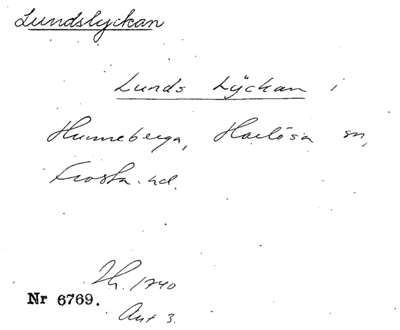 Lundslyckan
Lunds Lyckan i
Hunneberga, Harlösa sn,
Frosta hd.
Jb. 1740
Nr 6769.
Ant 3.